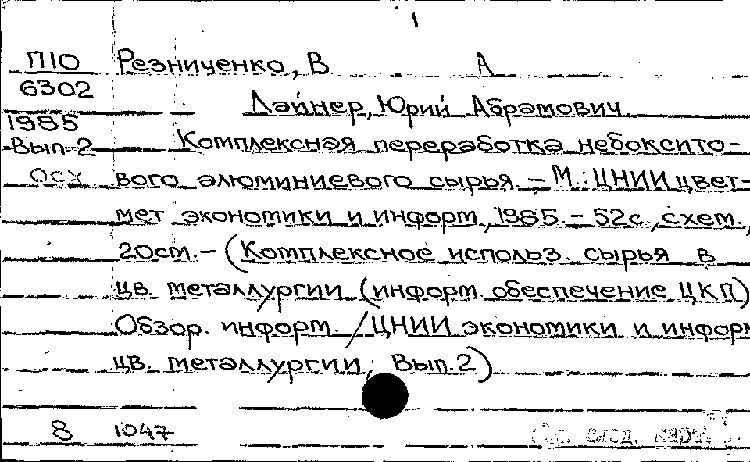 П10 Резниченко, В А
6302
Лайнер, Юрий Абрамович.
1985
Вып. 2 Комплексная переработка небоксито-
осх вого алюминиевого сырья. – М.: ЦНИИцвет-
мет экономики и информ., 1985. – 52с., схем.,
20см. – (Комплексное использ. сырья в
цв. металлургии (информ. обеспечение ЦКП)
Обзор. информ. / ЦНИИ экономики и информ
цв. металлургии; Вып. 2)
8 1047
См. след. карт.